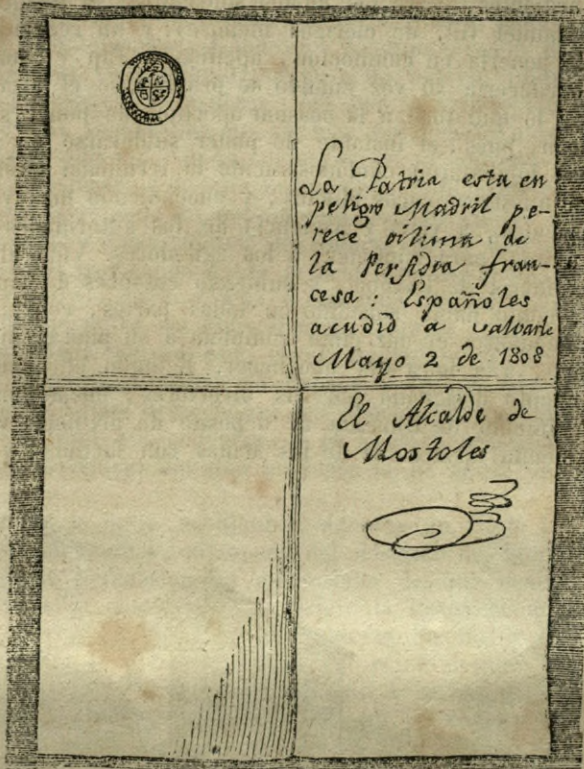 La Patria esta en
peligro Madril pe-
rece vitima de
la Perfidia fran-
cesa: Españoles
acudid a salvarle
Mayo 2 de 1808
El Alcalde de
Mostoles